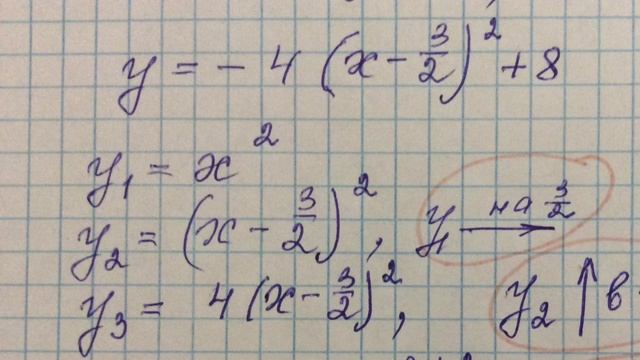 y = - 4 (x - 3/2)² + 8
y₁ = x²
y₂ = (x - 3/2)², y₁ → на 3/2
y₃ = 4 (x - 3/2)², y₂ ↑ в